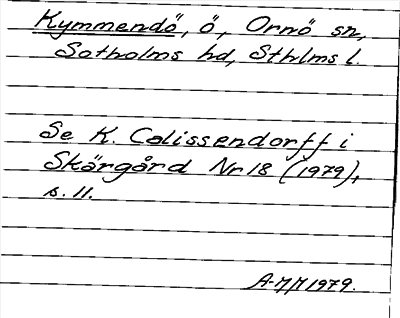 Kymmendö, ö, Ornö sn,
Sotholms hd, Sthlms l.
Se K. Calissendorff i
Skärgård Nr 18 (1979),
s. 11.
A-M/M 1979.